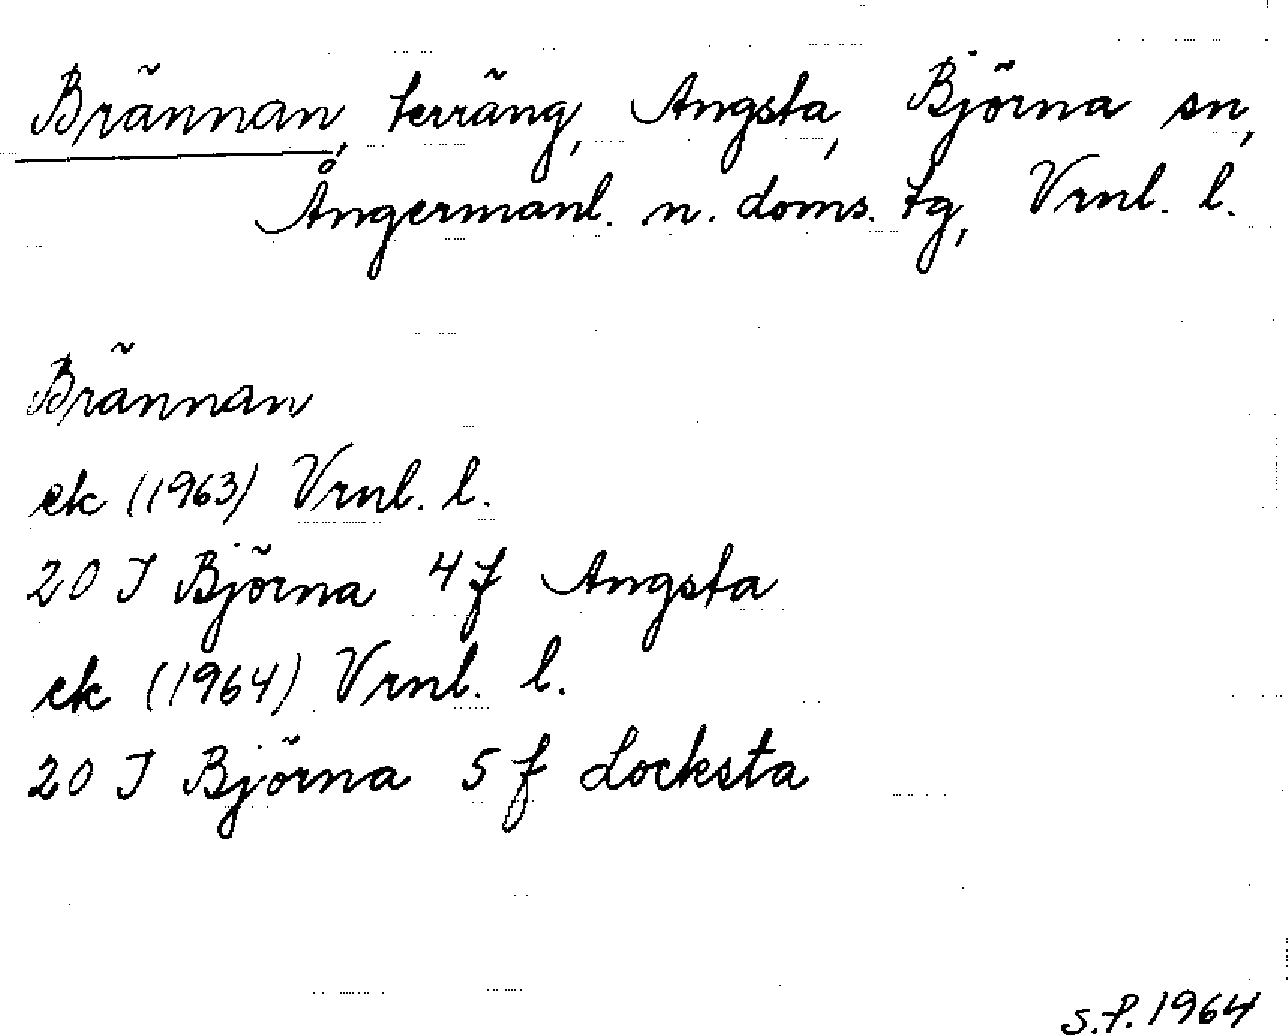 Brännan, terräng, Angsta, Björna sn,
Ångermanl. n. doms. tg, Vrnl. l.
Brännan
ek (1963) Vrnl. l.
20 I Björna 4f Angsta
ek (1964) Vrnl. l.
20 I Björna 5f Locksta
S.P. 1964